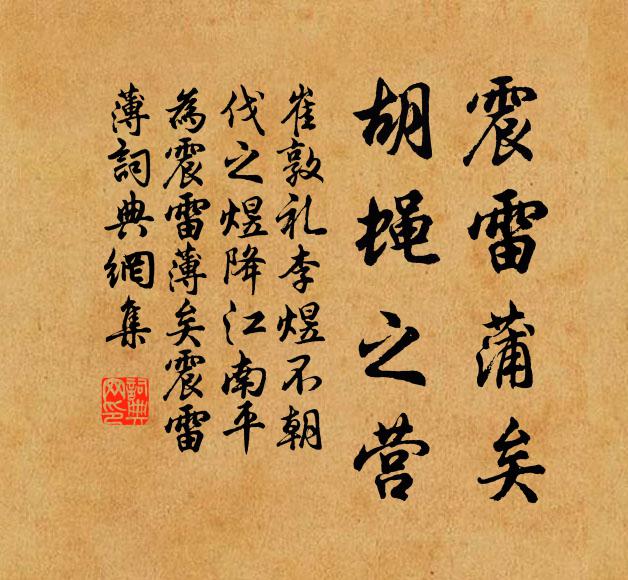 震雷蒲矣
胡蝇之营
崔敦礼李煜不朝
伐之煜降江南平
為震雷薄矣震雷
薄詞典網集
詞典网印